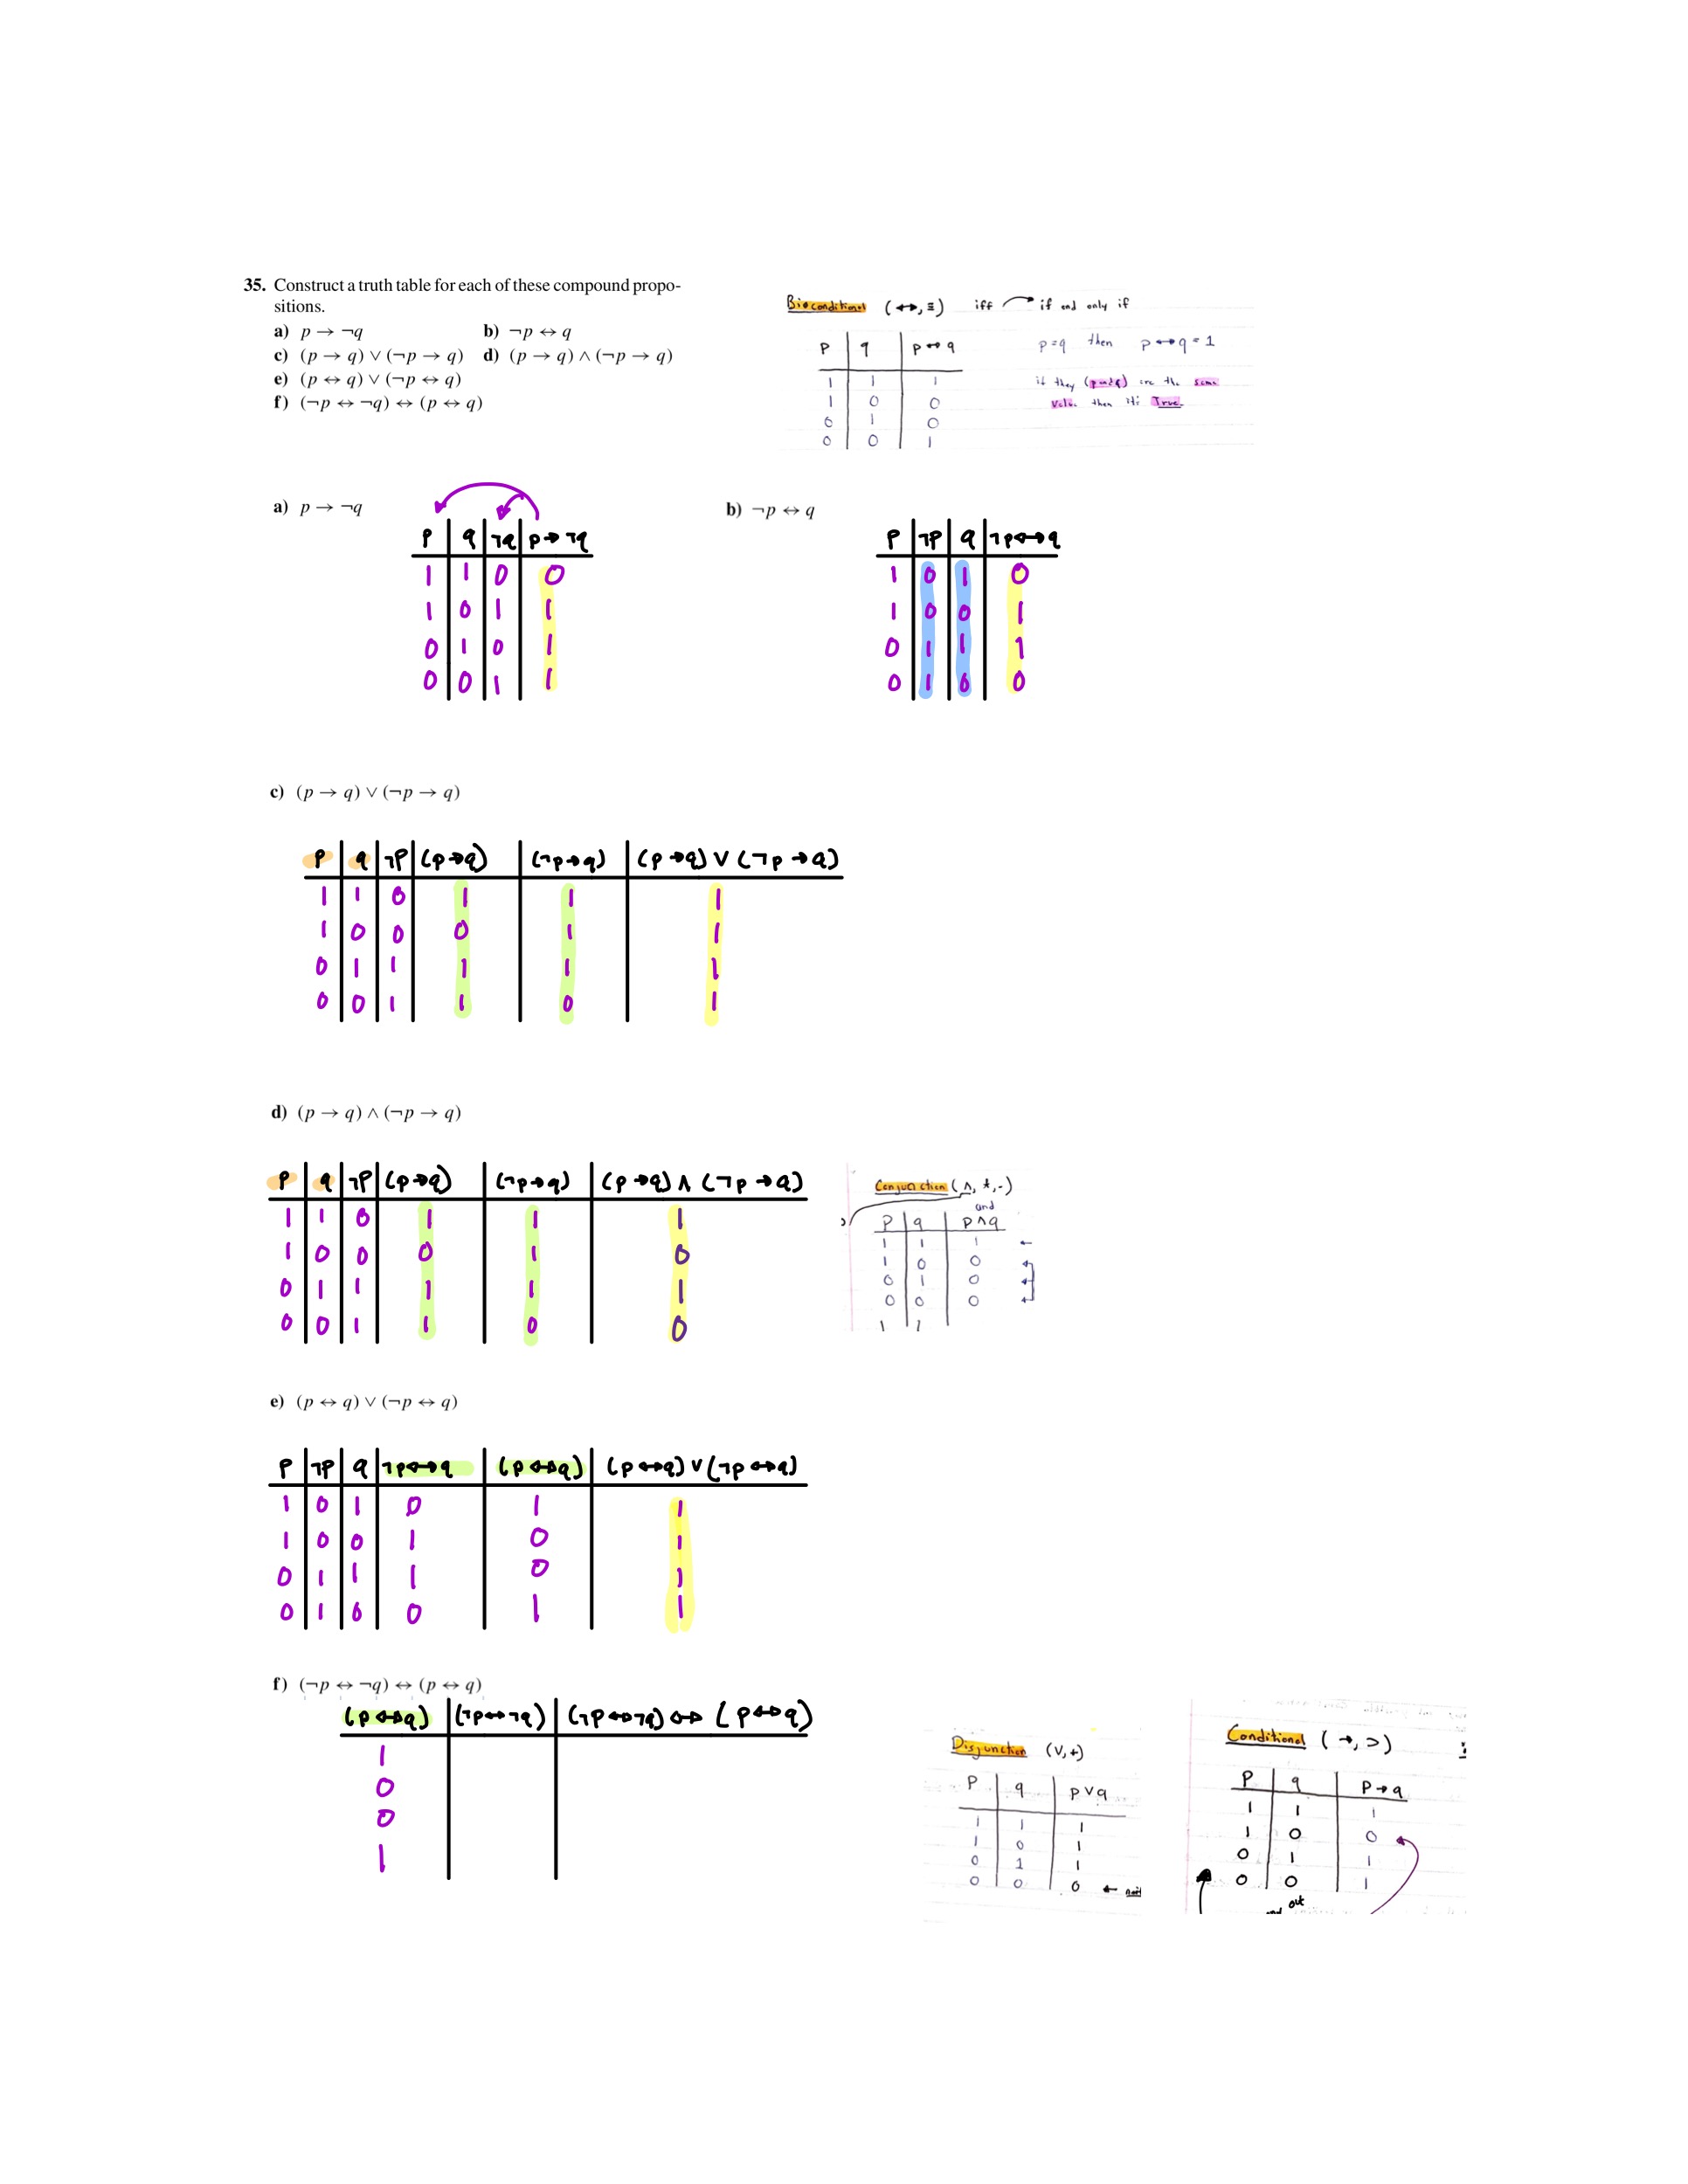 35. Construct a truth table for each of these compound propo-
sitions.
a) p → ¬q b) ¬p ↔ q
c) (p → q) ∨ (¬p → q) d) (p → q) ∧ (¬p → q)
e) (p ↔ q) ∨ (¬p ↔ q)
f) (¬p ↔ ¬q) ↔ (p ↔ q)
Bioconditional (↔, ≡) iff if and only if
p q p↔q
1 1 1
1 0 0
0 1 0
0 0 1
p=q then p↔q=1
if they (p and q) are the same
value then it's True.
a) p → ¬q
p q ¬q p→¬q
1 1 0 0
1 0 1 1
0 1 0 1
0 0 1 1
b) ¬p ↔ q
p ¬p q ¬p↔q
1 0 1 0
1 0 0 1
0 1 1 1
0 1 0 0
c) (p → q) ∨ (¬p → q)
p q ¬p (p→q) (¬p→q) (p→q) ∨ (¬p→q)
1 1 0 1 1 1
1 0 0 0 1 1
0 1 1 1 1 1
0 0 1 1 0 1
d) (p → q) ∧ (¬p → q)
p q ¬p (p→q) (¬p→q) (p→q) ∧ (¬p→q)
1 1 0 1 1 1
1 0 0 0 1 0
0 1 1 1 1 1
0 0 1 1 0 0
Conjunction (∧, *, ·)
and
p q p∧q
1 1 1
1 0 0
0 1 0
0 0 0
1 1
e) (p ↔ q) ∨ (¬p ↔ q)
p ¬p q ¬p↔q (p↔q) (p↔q) ∨ (¬p↔q)
1 0 1 0 1 1
1 0 0 1 0 1
0 1 1 1 0 1
0 1 0 0 1 1
f) (¬p ↔ ¬q) ↔ (p ↔ q)
(p↔q) (¬p↔¬q) (¬p↔¬q) ↔ (p↔q)
1
0
0
1
Disjunction (∨, +)
p q p∨q
1 1 1
1 0 1
0 1 1
0 0 0 ←
Conditional (→, ⊃)
p q p→q
1 1 1
1 0 0
0 1 1
0 0 1
out